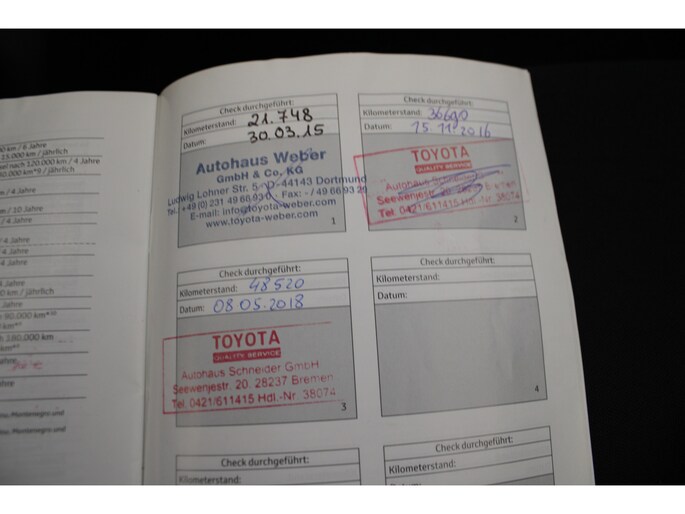 km / 6 Jahre
15.000 km / jährlich
nach 120.000 km / 4 Jahre
km*9 / jährlich
km / 4 Jahre
km / 10 Jahre
/ 4 Jahre
/ 4 Jahre
4 Jahre
4 Jahre
4 Jahre
km / jährlich
Jahre
90.000 km*10
180.000 km
Montenegro und
Montenegro und
Check durchgeführt:
Kilometerstand: 21.748
Datum: 30.03.15
Autohaus Weber
GmbH & Co. KG
Ludwig Lohner Str. 5 - D-44143 Dortmund
Tel.: +49 (0) 231 49 66 93 0 Fax: - / 49 66 93 20
E-mail: info@toyota-weber.com
www.toyota-weber.com
1
Check durchgeführt:
Kilometerstand: 36690
Datum: 15.11.2016
TOYOTA
QUALITY SERVICE
Autohaus Schneider
Seewenjestr. 20. 28237 Bremen
Tel. 0421/611415 Hdl.-Nr. 38074
2
Check durchgeführt:
Kilometerstand: 48520
Datum: 08.05.2018
TOYOTA
QUALITY SERVICE
Autohaus Schneider GmbH
Seewenjestr. 20. 28237 Bremen
Tel. 0421/611415 Hdl.-Nr. 38074
3
Check durchgeführt:
Kilometerstand:
Datum:
4
Check durchgeführt:
Kilometerstand:
Check durchgeführt:
Kilometerstand: